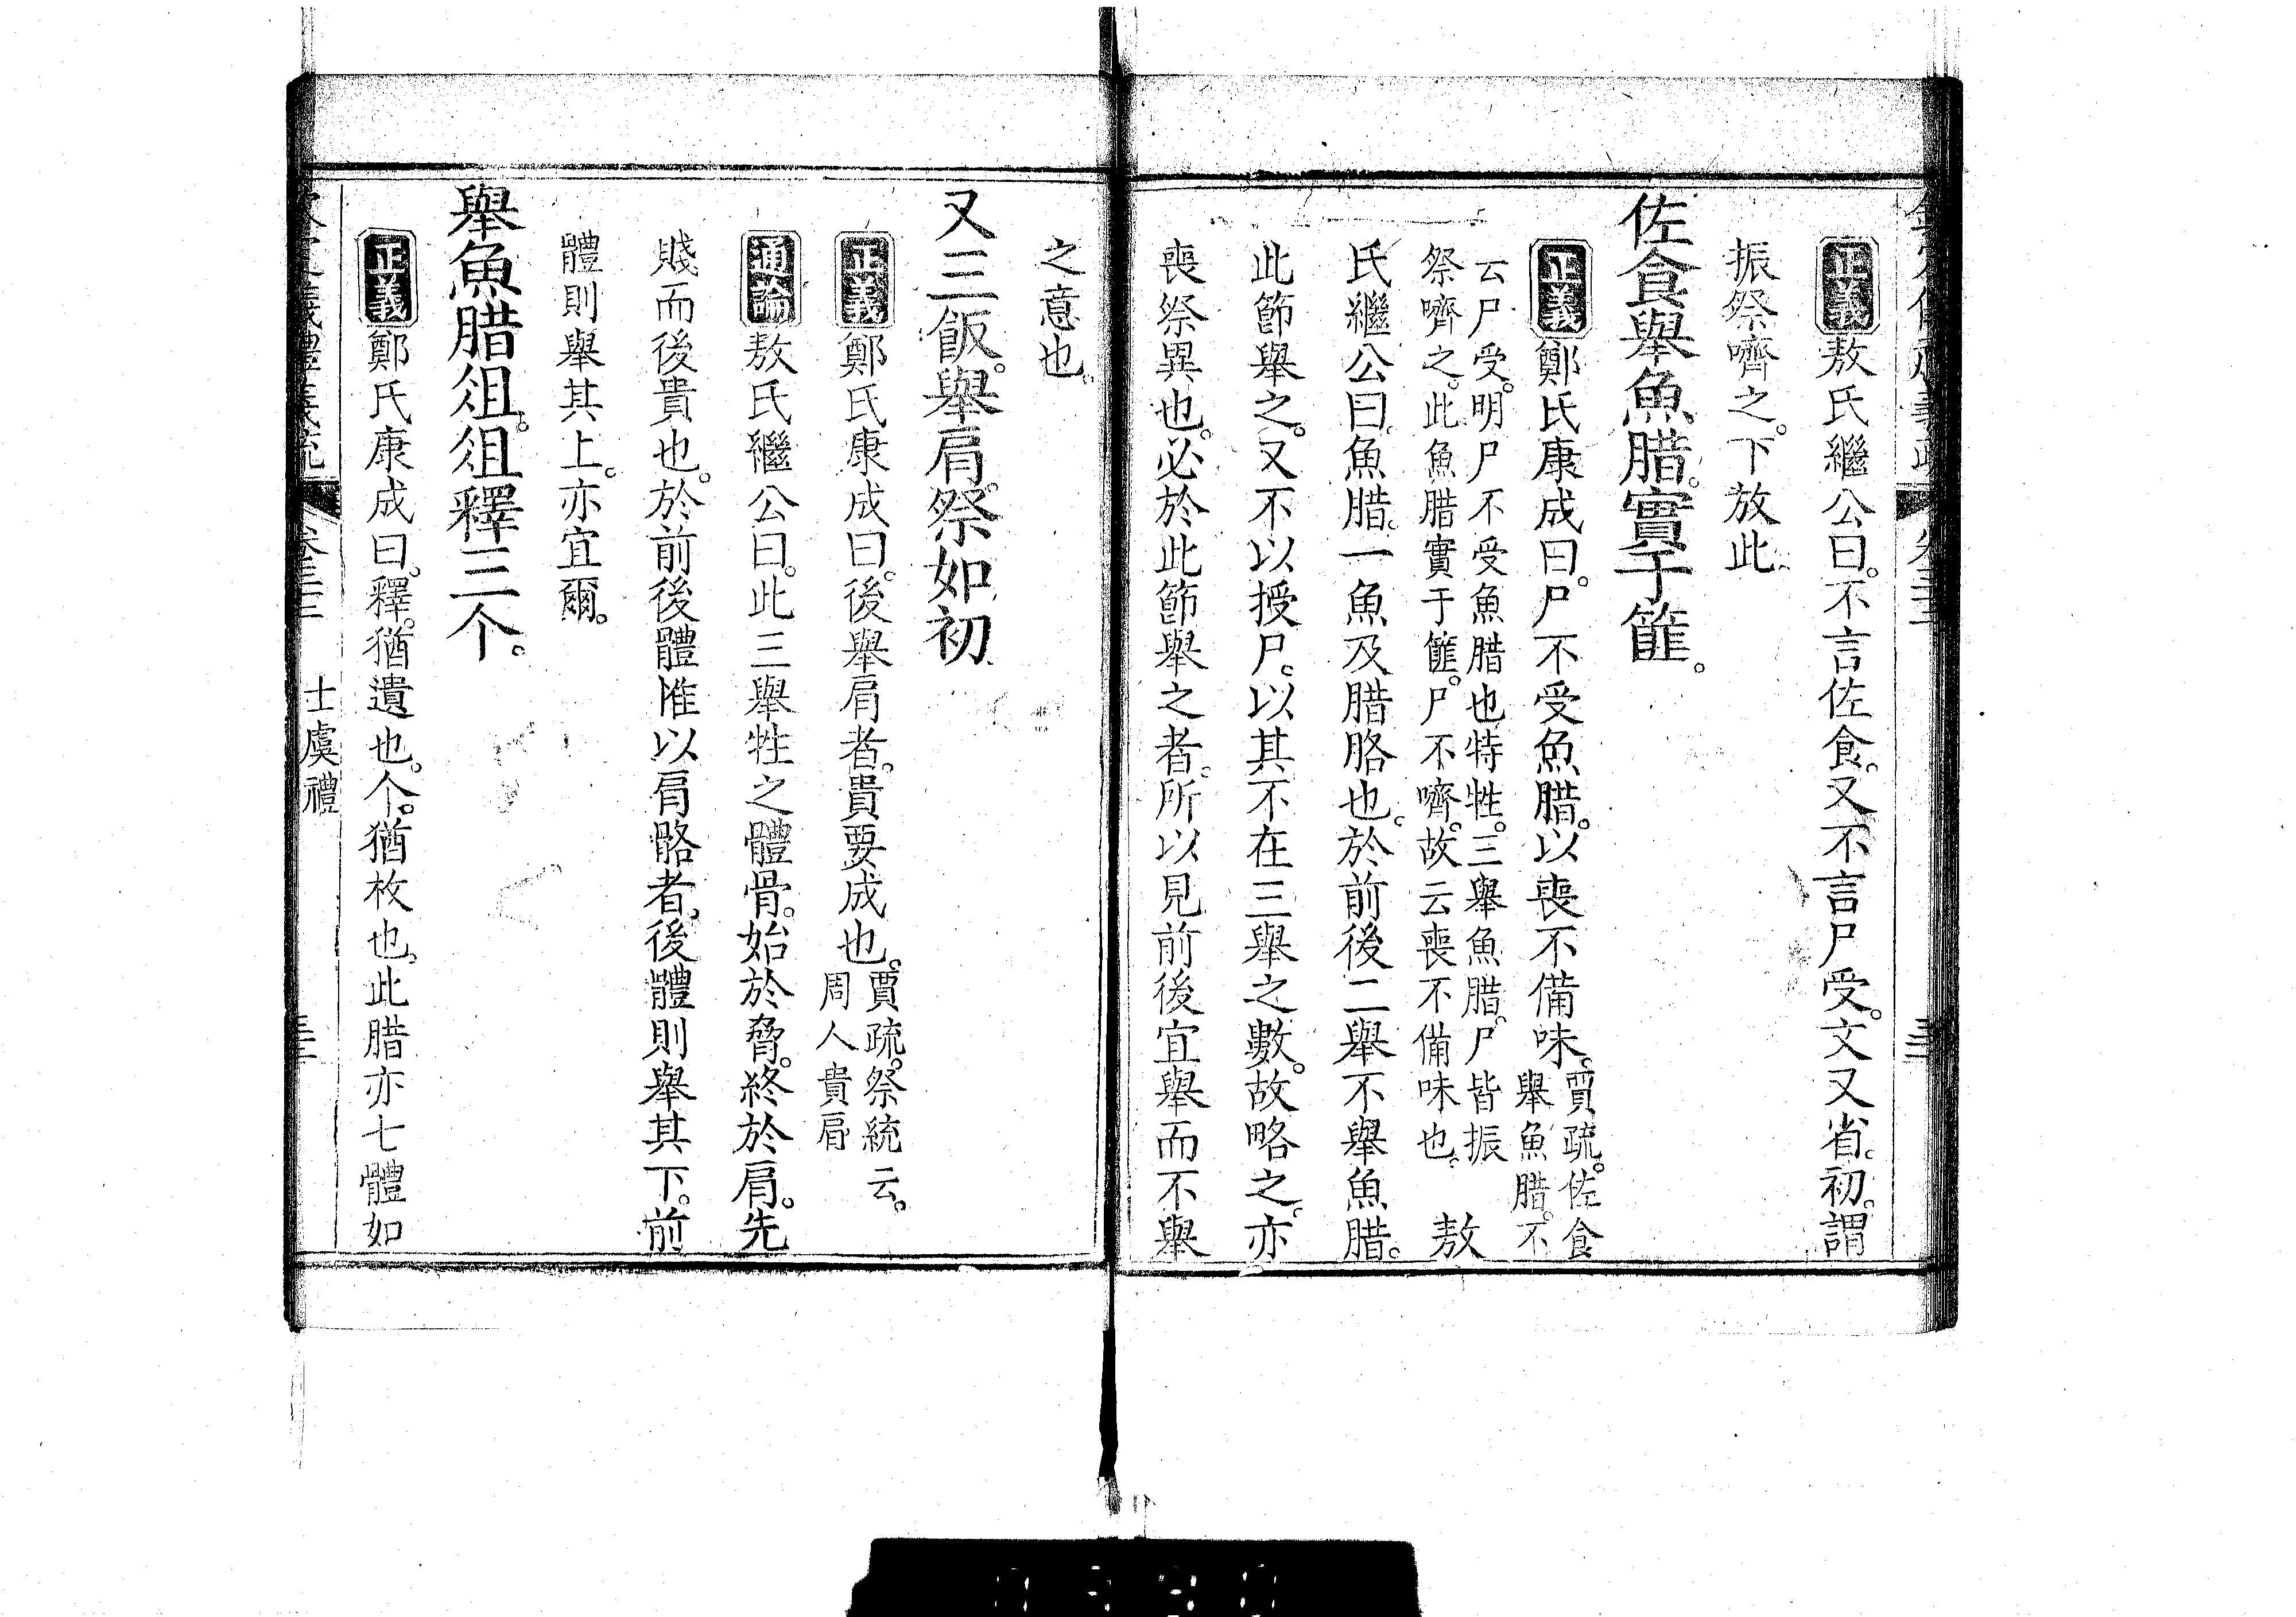 正義敖氏繼公曰。不言佐食。又不言尸受。文又省。初。謂
振祭嚌之。下放此
佐食舉魚腊。實于篚。
正義鄭氏康成曰。尸不受魚腊。以喪不備味。賈疏。佐食
舉魚腊。不
云尸受。明尸不受魚腊也特牲。三舉魚腊。尸皆振
祭嚌之。此魚腊實于篚。尸不嚌。故云喪不備味也。 敖
氏繼公曰。魚腊。一魚及腊胳也。於前後二舉不舉魚腊。
此節舉之。又不以授尸。以其不在三舉之數。故略之。亦
喪祭異也。必於此節舉之者。所以見前後宜舉而不舉
之意也。
又三飯。舉肩。祭如初
正義鄭氏康成曰。後舉肩者。貴要成也。賈疏。祭統云。
周人貴肩
通論敖氏繼公曰。此三舉牲之體骨。始於脅。終於肩。先
賤而後貴也。於前後體惟以肩胳者。後體則舉其下。前
體則舉其上。亦宜爾。
舉魚腊俎。俎釋三个。
正義鄭氏康成曰。釋。猶遺也。个。猶枚也。此腊亦七體如
士虞禮